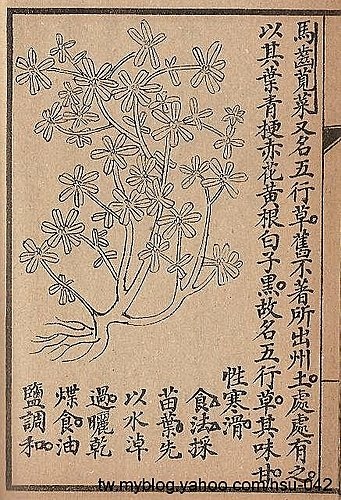 馬齒莧菜又名五行草。舊不著所出州土。處處有之。
以其葉青梗赤花黃根白子黑。故名五行草。其味甘。
性寒滑。
食法。採
苗葉先
以水焯
過。曬乾
煠食。油
鹽調和。
tw.myblog.yahoo.com/hsu-042